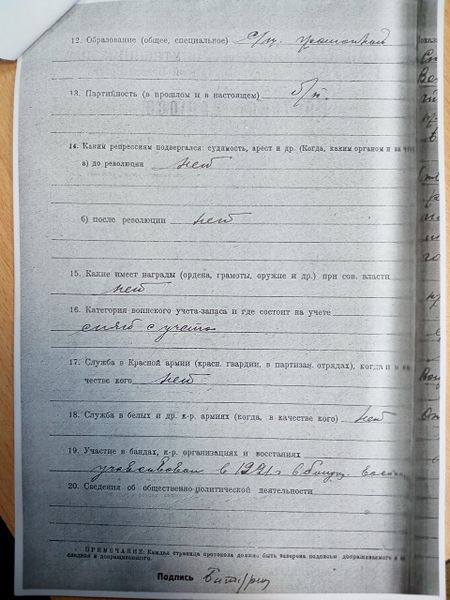 12. Образование (общее, специальное) с/н. грамотный
13. Партийность (в прошлом и в настоящем) б/п.
14. Каким репрессиям подвергался: судимость, арест и др. (Когда, каким органом и за что)
а) до революции нет
б) после революции нет
15. Какие имеет награды (ордена, грамоты, оружие и др.) при сов. власти
нет
16. Категория воинского учета-запаса и где состоит на учете
снят с учета
17. Служба в Красной армии (красн. гвардии, в партизан. отрядах), когда и в ка-
честве кого нет
18. Служба в белых и др. к-р. армиях (когда, в качестве кого) нет
19. Участие в бандах, к-р. организациях и восстаниях
участвовал в 1921 г в банд.
20. Сведения об общественно-политической деятельности
ПРИМЕЧАНИЕ: Каждая страница протокола должна быть заверена подписью допрашиваемого а по-
следняя и допрашивающего.
Подпись